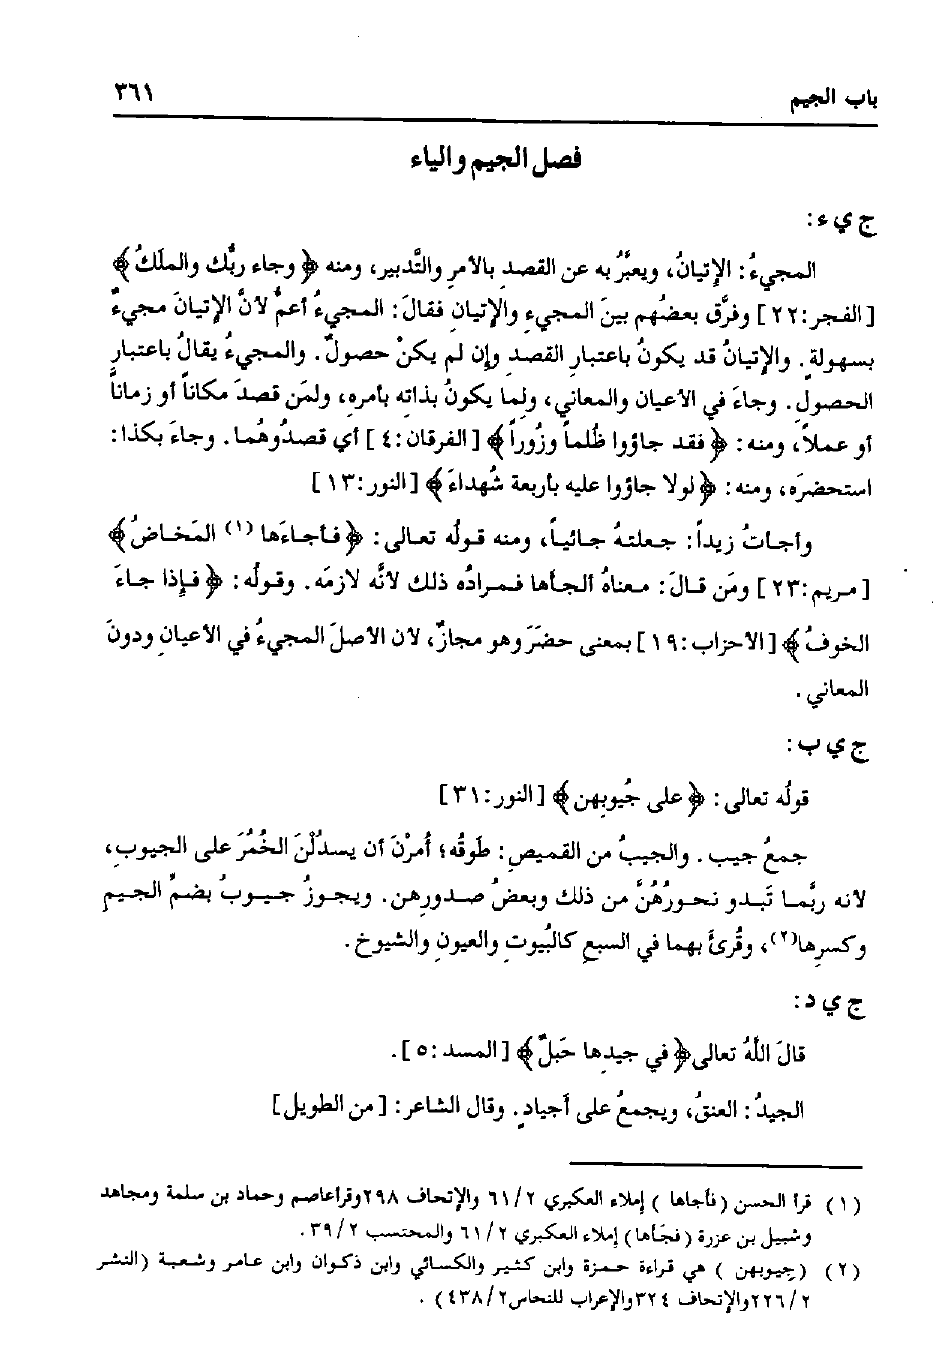 باب الجيم ٣٦١
فصل الجيم والياء
ج ي ء:
المجيءُ: الإتيانُ، ويعبَّرُ به عن القصدِ بالأمرِ والتَّدبير، ومنه ﴿وجاء ربُّك والملَكُ﴾
[الفجر:٢٢] وفرَّق بعضُهم بينَ المجيءِ والإتيانِ فقالَ: المجيءُ أعمُّ لأنَّ الإتيانَ مجيءٌ
بسهولةٍ. والإتيانُ قد يكونُ باعتبارِ القصدِ وإن لم يكنْ حصولٌ. والمجيءُ يقالُ باعتبارِ
الحصولِ. وجاءَ في الأعيان والمعاني، ولما يكونُ بذاته بأمرِه، ولمَن قصدَ مكاناً أو زماناً
أو عملاً، ومنه: ﴿فقد جاؤوا ظُلماً وزُوراً﴾ [الفرقان:٤] أي قصدُوهُما. وجاءَ بكذا:
استحضرَه، ومنه: ﴿لولا جاؤوا عليه بأربعة شُهداءَ﴾ [النور:١٣]
وأجـأتُ زيداً: جـعلتهُ جـائيـاً، ومنه قـولُه تعـالى: ﴿فـأجـاءَها (١) المَخـاضُ﴾
[مريم:٢٣] ومَن قـالَ: معناهُ ألجـأها فـمرادُه ذلك لأنَّه لازمَه. وقـولُه: ﴿فـإذا جـاءَ
الخوفُ﴾ [الأحزاب:١٩] بمعنى حضَرَ وهو مجازٌ، لأن الأصلَ المجيءُ في الأعيانِ ودونَ
المعاني.
ج ي ب:
قولُه تعالى: ﴿على جُيوبهن﴾ [النور:٣١]
جمعُ جيب. والجيبُ من القميصِ: طَوقُه؛ أُمرْنَ أن يسدُلْنَ الخُمُرَ على الجيوبِ،
لأنه ربَّمـا تَبـدو نحـورُهُنَّ من ذلك وبعضُ صـدورِهن. ويجـوزُ جـيـوبُ بضمِّ الجيم
وكسرِها(٢)، وقُرئَ بهما في السبعِ كالبُيوتِ والعيونِ والشيوخ.
ج ي د:
قالَ اللَّهُ تعالى ﴿في جيدِها حَبلٌ﴾ [المسد:٥].
الجيدُ: العنقُ، ويجمعُ على أجيادٍ. وقال الشاعر: [من الطويل]
(١) قرأ الحسن (فأجاها) إملاء العكبري ٦١/٢ والإتحاف ٢٩٨ وقرأ عاصم وحماد بن سلمة ومجاهد
وشبيل بن عزرة (فجَأها) إملاء العكبري ٦١/٢ والمحتسب ٣٩/٢.
(٢) (جِيوبهن) هي قراءة حمزة وابن كثير والكسائي وابن ذكوان وابن عامر وشعبة (النشر
٢٢٦/٢ والإتحاف ٣٢٤ والإعراب للنحاس ٤٣٨/٢).